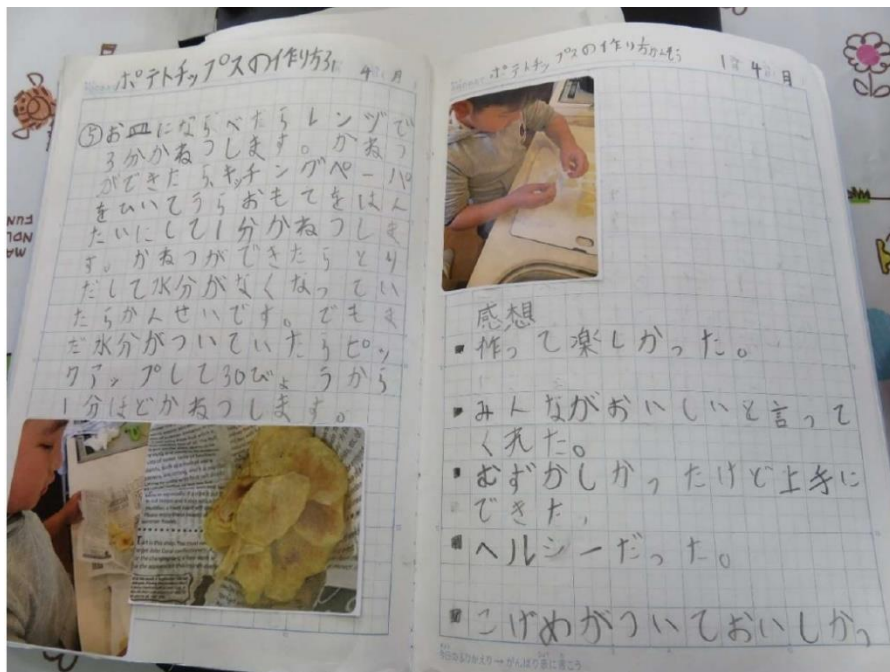 ポテトチップスの作り方
4月
⑤お皿にならべたらレンヅで
3分かねつします。かねつ
ができたら、キッチングペーパ
をひいてうらおもてをはん
たいにして1分かねつしま
す。かねつができたらとり
だして水分がなくなってい
たらかんせいです。でもま
だ水分がついていたらピッ
クアップして30びょうから
1分ほどかねつします。
ポテトチップスの作り方かんそう
4月
感想
作って楽しかった。
みんながおいしいと言って
くれた。
むずかしかったけど上手に
できた。
ヘルシーだった。
こげめがついておいしかっ